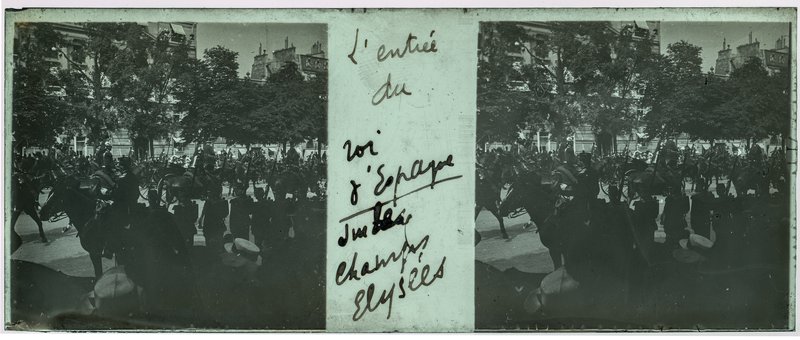 L'entrée
du
roi
d'Espagne
sur les
Champs
Elysées